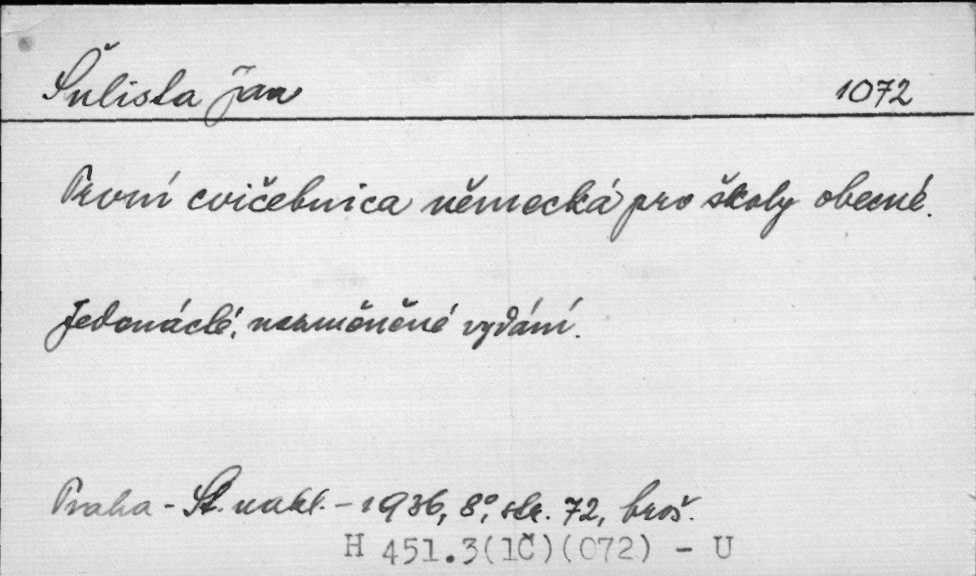 Šulista Jan 1072
První cvičebnica německá pro školy obecné.
Jedonácté, nezměněné vydání.
Praha - St. nakl. - 1936, 8°, str. 72, brož.
H 451.3(1Č)(072) - U